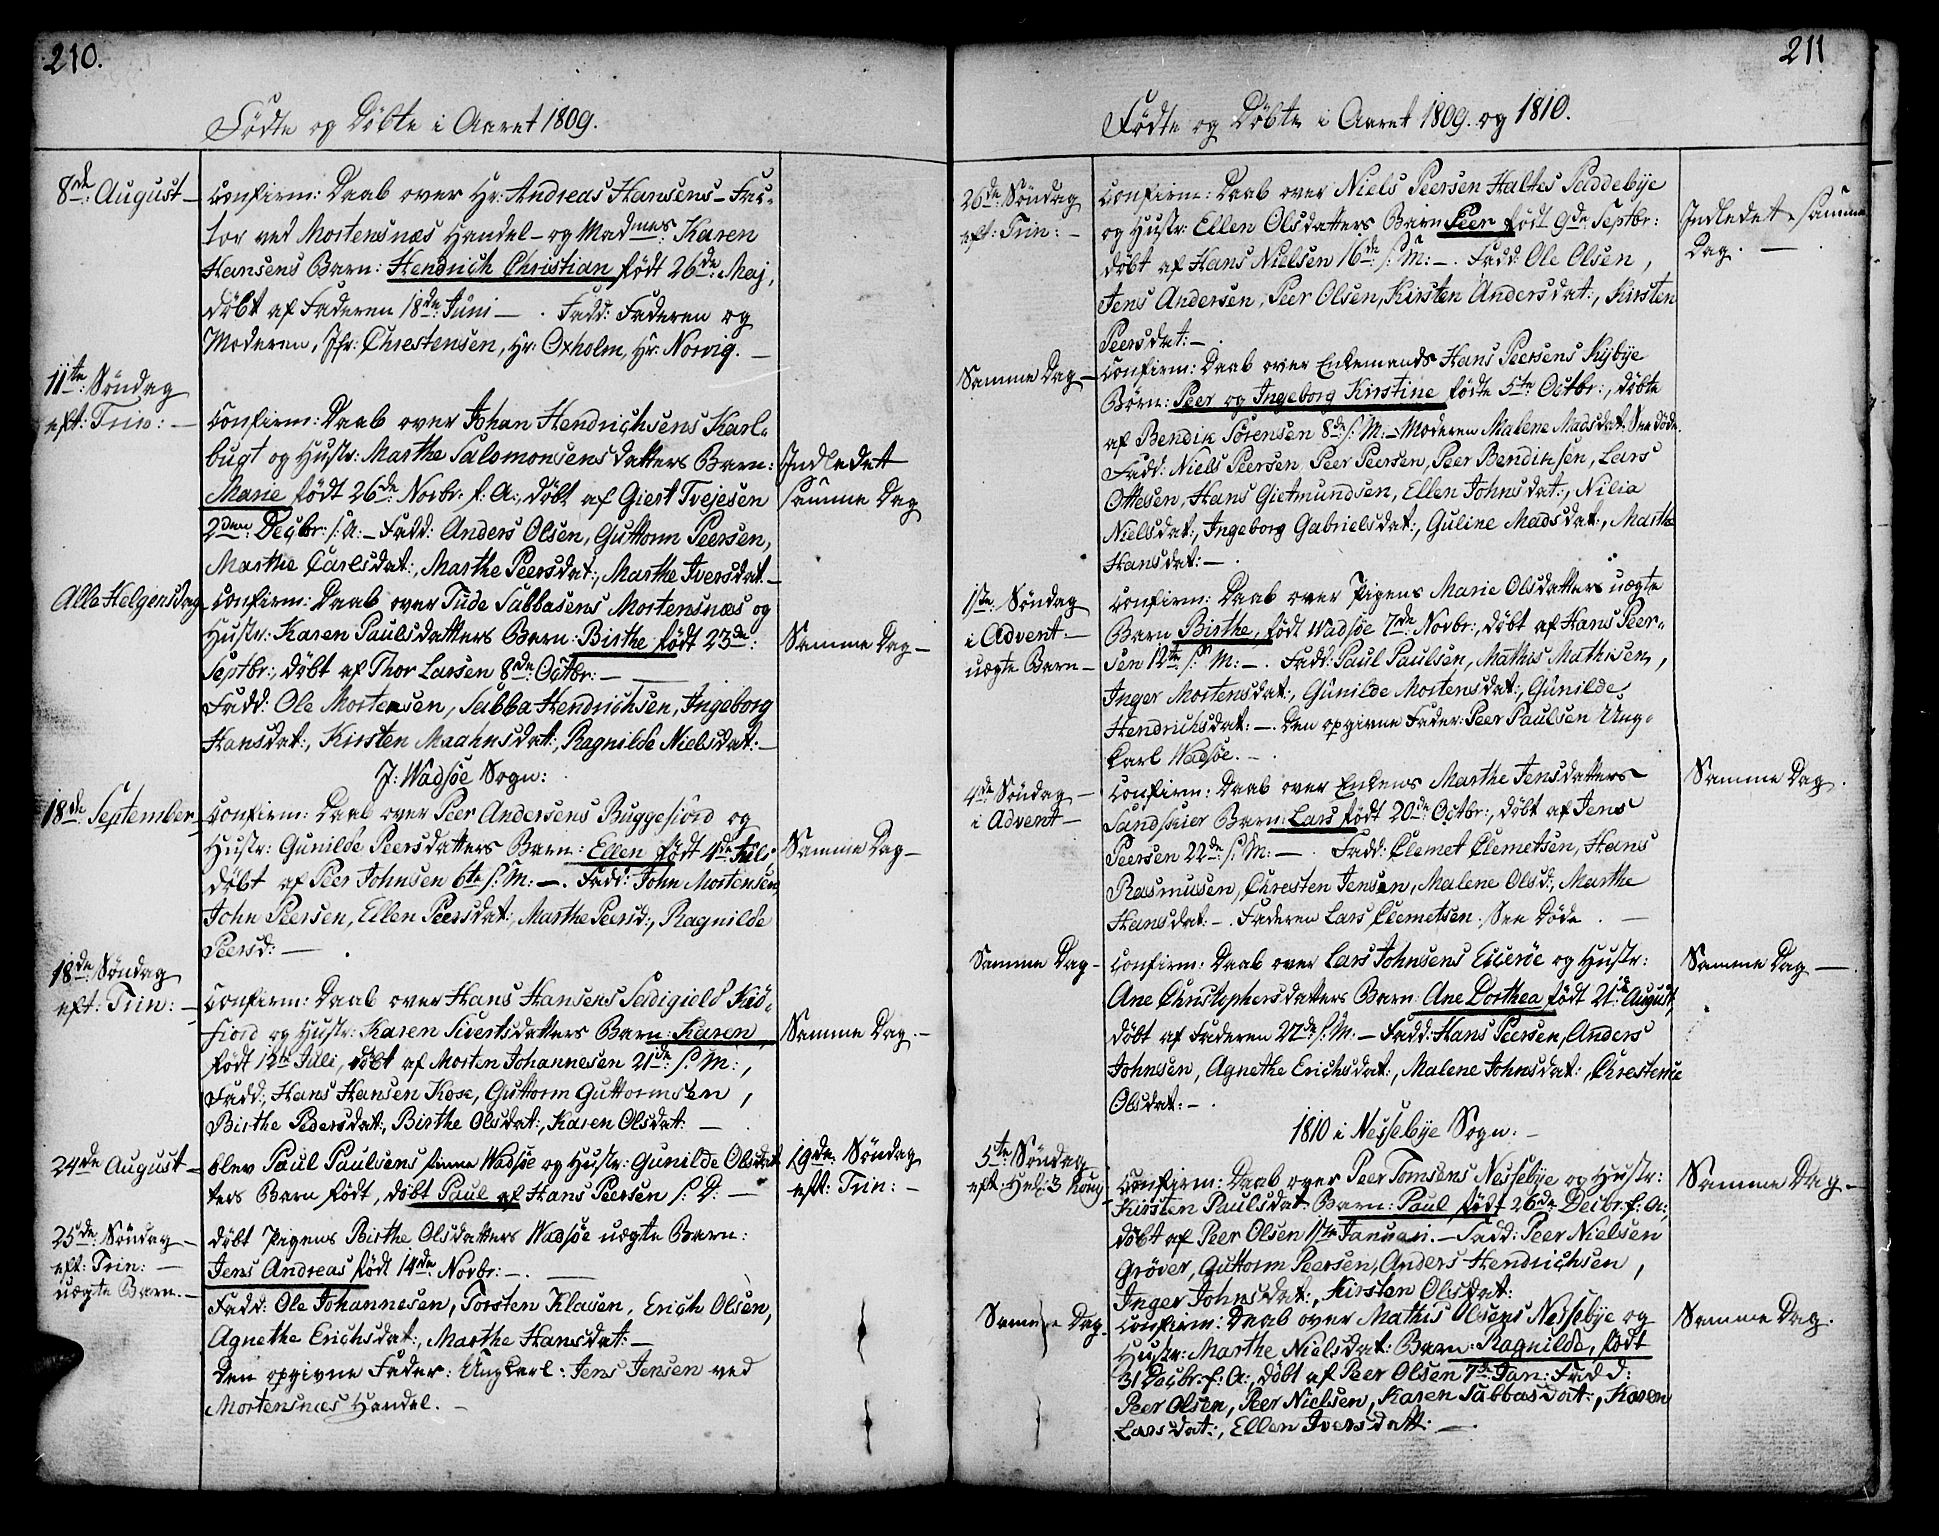 210.
Födte og Döbte i Aaret 1809.
8de: August —
Confirm: Daab over Hr: Andreas Hansens — Fac-
tor ved Mortensnæs Handel — og Madmes: Karen
Hansens Barn: Hendrich Christian født 26de Maj,
döbt af Faderen 18de Juni — . Fadd: Faderen og
Moderen, Jfr: Chrestensen, Hr: Oxholm, Hr: Norvig. —
11te: Söndag
eft: Trin: —
Confirm: Daab over Johan Hendrichsens Karl-
bugt og Hustr: Marthe Salomonsensdatters Barn:
Marie født 26de Novbr: f: A:, döbt af Giert Tvejesen
2den: Decbr: s: A: — Fadd: Anders Olsen, Guttorm Peersen,
Marthe Carlsdat:, Marthe Peersdat:, Marthe Iversdat —
Indledet
samme Dag
Alle Helgensdag
Confirm: Daab over Tude Sabbasens Mortensnæs og
Hustr: Karen Paulsdatters Barn: Birthe født 23de:
Septbr:, döbt af Thor Larsen 8de: Octbr: —
Fadd: Ole Mortensen, Sabba Hendrichsen, Ingeborg
Hansdat:, Kirsten Maahnsdat:, Ragnilde Nielsdat: —
Samme Dag —
I: Wadsöe Sogn:
18de: September
Confirm: Daab over Peer Andersens Buggefiord og
Hustr: Gunilde Peersdatters Barn: Ellen født 4de Juli
döbt af Peer Johnsen 6te s: M: — . Fadd: John Mortensen,
John Peersen, Ellen Peersdat:, Marthe Peersd:, Ragnilde
Peersd: — .
Samme Dag —
18de: Söndag
eft: Trin: —
Confirm: Daab over Hans Hansens Kiö-
fiord og Hustr: Karen Sivertsdatters Barn: Karen,
født 12te Juli, döbt af Morten Johannesen 21de: s: M:,
Fadd:, Hans Hansen Kose, Guttorm Guttormsen,
Birthe Pedersdat:, Birthe Olsdat:, Karen Olsdat: —
Samme Dag. —
24de August —
blev Paul Paulsens Wadsöe og Hustr: Gunilde Olsdat
ters Barn födt, döbt Paul af Hans Peersen s: D: —
19de: Söndag
eft: Trin: —
25de: Söndag —
eft: Trin: —
uægte Barn. —
döbt Pigens Birthe Olsdatters Wadsöe uægte Barn:
Jens Andreas født 14de Novbr: — .
Fadd: Ole Johannesen, Torsten Klasen, Erich Olsen,
Agnethe Erichsdat:, Marthe Hansdat: —
Den opgivne Fader: Ungkarl: Jens Jensen ved
Mortensnæs Handel. —
211
Födte og Döbte i Aaret 1809. og 1810.
26de: Söndag
eft: Trin: —
Confirm: Daab over Niels Peersen Haltes Paddebye
og Hustr: Ellen Olsdatters Barn Peer födt 9de Septbr:
döbt af Hans Nielsen 16de s: M: — . Fadd: Ole Olsen,
Jens Andersen, Peer Olsen, Kirsten Andersdat:, Kirsten
Peersdat: — .
Indledet samme
Dag. —
Samme Dag —
Confirm: Daab over Enkemands Hans Peersens Kybye
Börn: Peer og Ingeborg Kirstine födte 5te Octbr:, döbte
af Bendik Sörensen 8de s: M: — Moderen Malene Madsdat. See döde.
Fadd: Niels Peersen, Peer Peersen, Peer Bendiksen, Lars
Ottesen, Hans Gietmundsen, Ellen Johnsdat:, Nilia
Nielsdat:, Ingeborg Gabrielsdat:, Guline Madsdat:, Marthe
Hansdat: — .
1ste: Söndag
i Advent —
uægte Barn —
Confirm: Daab over Pigens Marie Olsdatters uægte
Barn Birthe, födt Wadsöe 7de: Novbr:, döbt af Hans Peer-
sen 12te s: M: — . Fadd: Paul Paulsen, Mathis Mathisen,
Inger Mortensdat:, Gunilde Mortensdat:, Gunilde
Hendrichsdat: — . Den opgivne Fader: Peer Paulsen Ung-
karl Wadsöe. —
4de: Söndag —
i Advent —
Confirm: Daab over Enkens Marthe Jensdatters
Barn: Lars födt 20de Octbr:, döbt af Jens
Peersen 22de: s: M: — . Fadd: Clemet Clemetsen, Hans
Rasmusen, Chresten Jensen, Malene Olsd:, Marthe
Hansdat: — . Faderen Lars Clemetsen. See Döde . —
Samme Dag .
Samme Dag —
Confirm: Daab over Lars Johnsens og Hustr:
Ane Christophersdatters Barn: Ane Dorthea födt 21de: August,
döbt af Faderen 22de s: M: — Fadd: Hans Peersen, Anders
Johnsen, Agnethe Erichsdat:, Malene Johnsdat:, Chrestense
Olsdat: — .
Samme Dag — .
1810 i Nessebye Sogn: —
5te: Söndag
eft: Hel: 3 Kong
Confirm: Daab over Peer Tomsens Nessebye og Hustr:
Kirsten Paulsdat: Barn: Paul, födt 26de Decbr: f: A:,
döbt af Peer Olsen 1ste Januari. — Fadd: Peer Nielsen
Gröver, Guttorm Peersen, Anders Hendrichsen,
Inger Johnsdat:, Kirsten Olsdat:
Samme Dag —
Samme Dag
Confirm: Daab over Mathis Olsens Nessebye og
Hustr: Marthe Nielsdat: Barn: Ragnilde, födt
31 Decbr: f: A:, döbt af Peer Olsen 7de Jan: Fadd:
Peer Olsen, Peer Nielsen, Karen Sabbasdat:, Karen
Larsdat:, Ellen Iversdatt: —
Samme Dag.